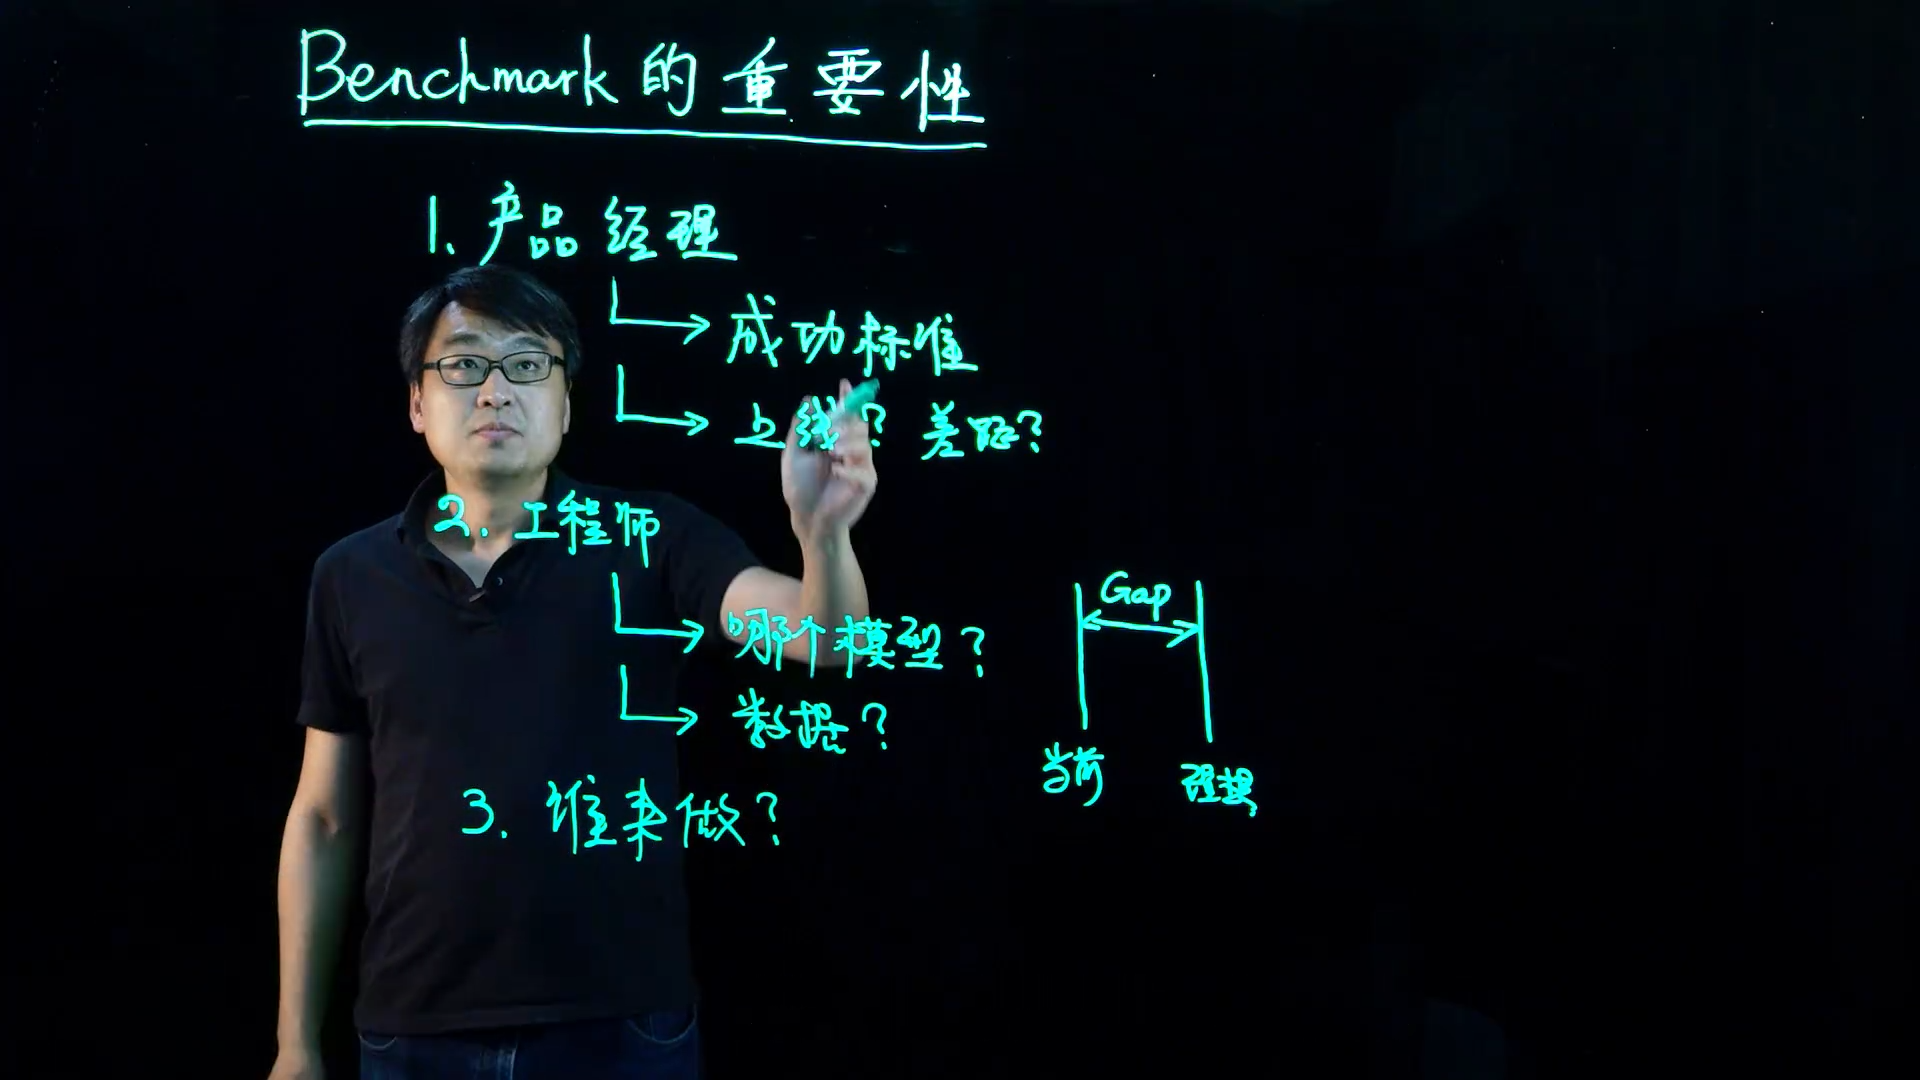 Benchmark的重要性
1.产品经理
成功标准
上线? 差距?
2.工程师
哪个模型?
数据?
3.谁来做?
Gap
当前 理想